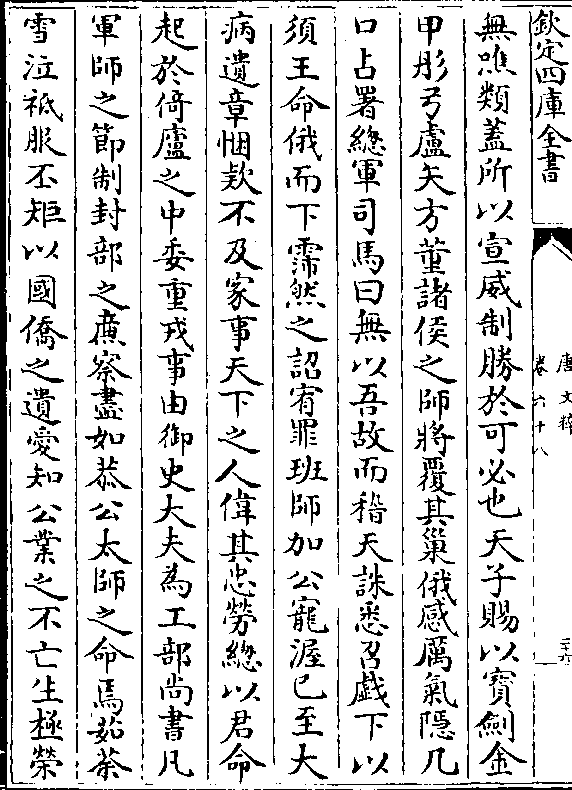 欽定四庫全書
唐文粹
卷六十八
無噍類蓋所以宣威制勝於可必也天子賜以寶劍金
甲彤弓盧矢方董諸侯之師將覆其巢俄感厲氣隱几
口占署總軍司馬曰無以吾故而稽天誅悉召戲下以
須王命俄而下霈然之詔宥罪班師加公寵渥已至大
病遺章悃欵不及家事天下之人偉其忠勞總以君命
起於倚廬之中委重戎事由御史大夫為工部尚書凡
軍師之節制封部之廉察盡如恭公太師之命焉茹荼
雪泣祗服丕矩以國僑之遺愛知公業之不亡生極榮